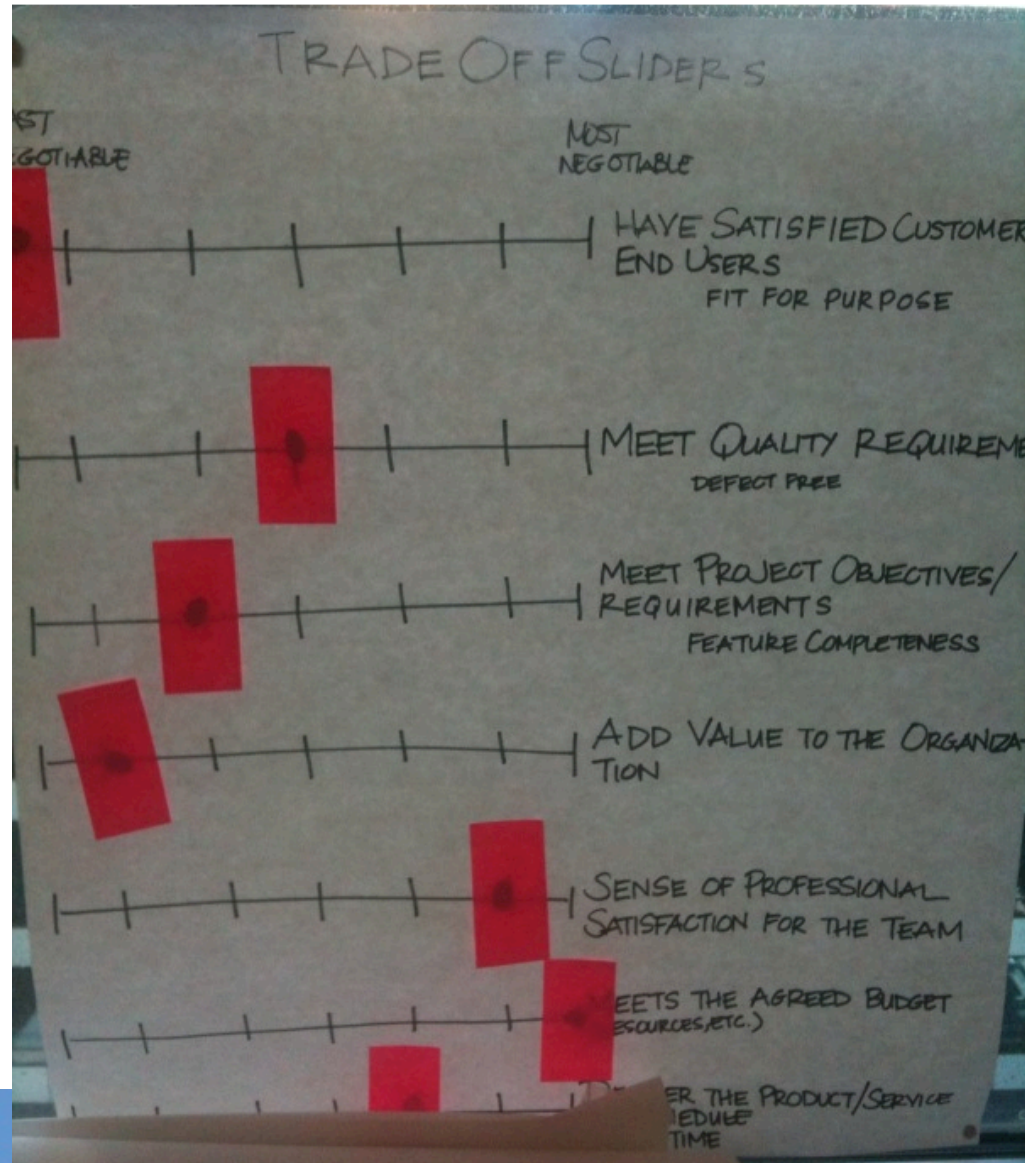 TRADE OFF SLIDERS
MOST
NEGOTIABLE
HAVE SATISFIED CUSTOMER
END USERS
FIT FOR PURPOSE
MEET QUALITY
DEFECT FREE
MEET PROJECT OBJECTIVES/
REQUIREMENTS
FEATURE COMPLETENESS
ADD VALUE TO THE ORGANIZA-
TION
SENSE OF PROFESSIONAL
SATISFACTION FOR THE TEAM
THE AGREED BUDGET
ETC.)
THE PRODUCT/SERVICE
TIME